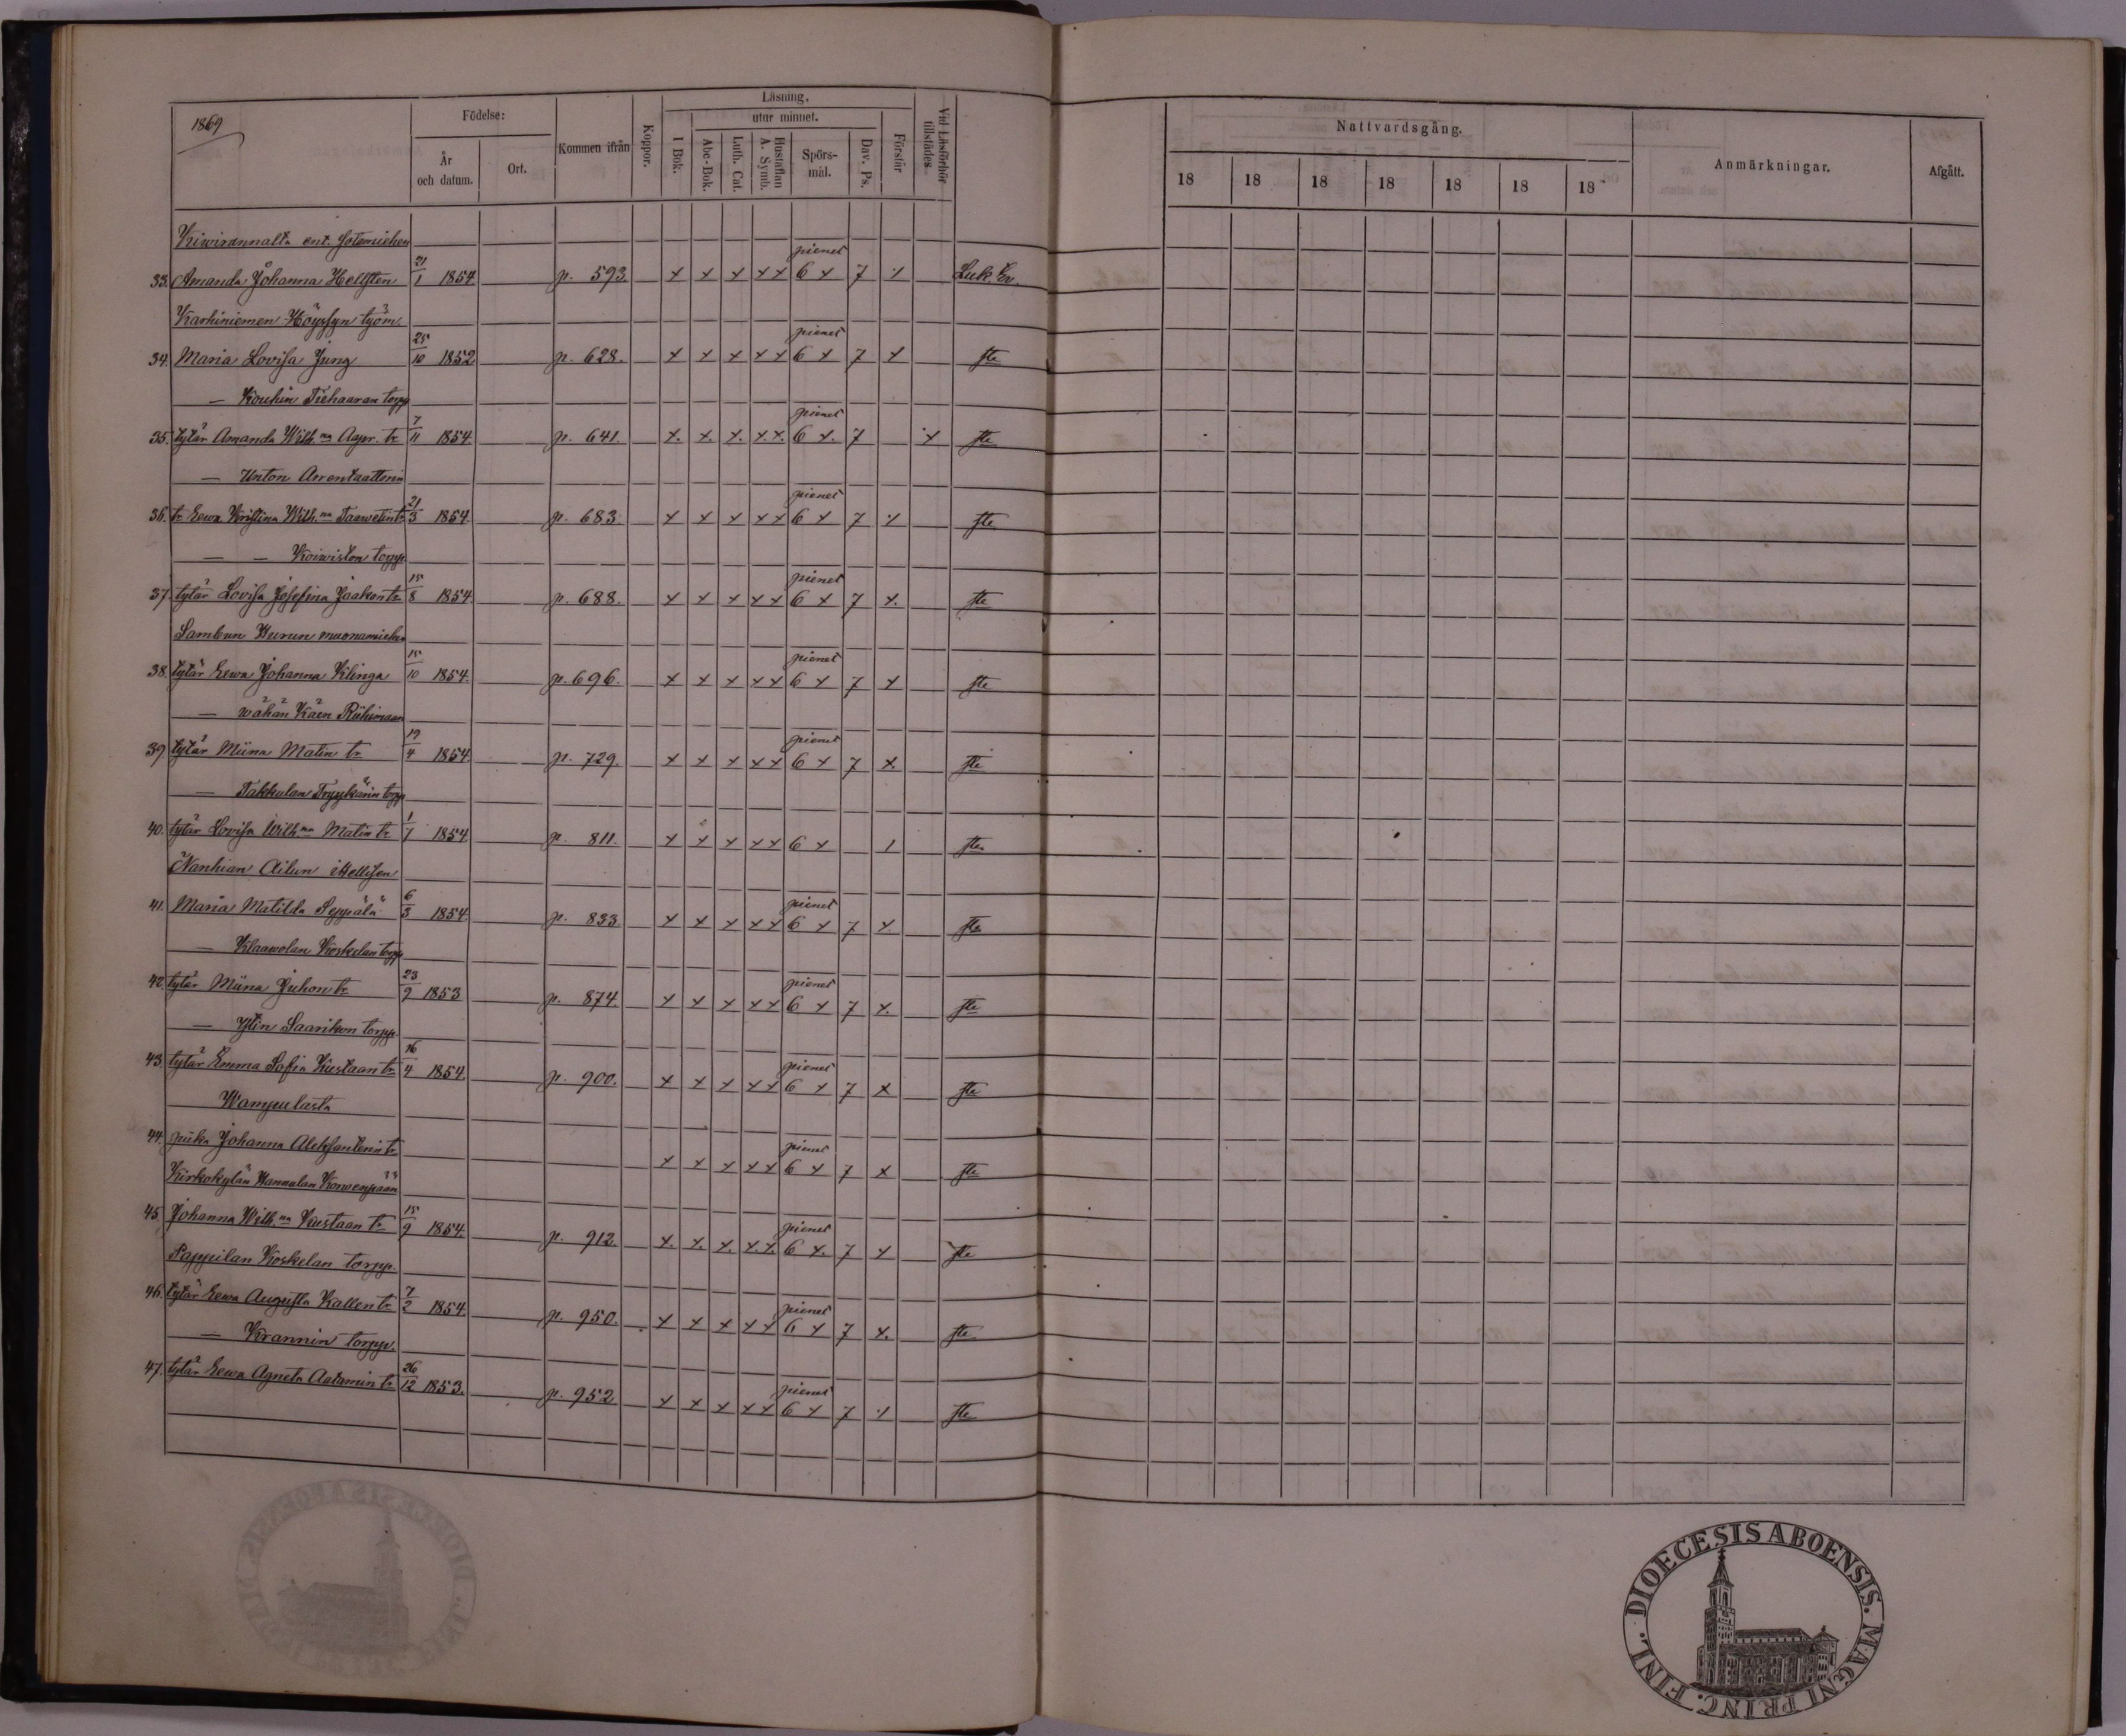 1869
Födelse:
År och datum.
Ort.
Kommen ifrån
Koppor.
Läsning.
utur minnet.
I Bok.
Abc-Bok.
Luth. Cat.
Hustaflan A. Symb.
Spörs-mål.
Dav. Ps.
Förstår
Vid Läsförhör tillstädes
Nattvardsgång.
18 18 18 18 18 18 18
Anmärkningar.
Afgått.
Kiwirannalta ent.
pienet
33. Amanda Johanna Hellsten 21/1 1854 p. 593. x x x x x 6 x 7 x Luk. Ev.
Karhiniemen Höyssyn työm.
pienet
34. Maria Lovisa Jung 25/10 1852 p. 628. x x x x x 6 x 7 x
— Kouhin Tiehaaran torpp
pienet
35. tytär Amanda Wilh:na Aapr. tr 7/11 1854. p. 641. x. x. x. x. x. 6 x. 7 x
— Unton Arentaattorin
pienet
36. tr Eewa Kristina Wilh:na Taawetin tr 21/3 1854. p. 683 x x x x x 6 x 7 x
— — Koiwiston torpp.
pienet
37. tytär Lovisa Josefina Jaakon tr 15/8 1854. p. 688. x x x x x 6 x 7 x.
Sambun Yurun muonamiehen
pienet
38. tytär Eewa Johanna Klinga 15/10 1854. p. 696. x x x x x 6 x 7 x
— wähän Käen Riihimaan
pienet
39. tytär Miina Matin tr 19/4 1854. p. 729. x x x x x 6 x 7 x.
— Takkulan torpp
40. tytär Lovisa Wilh:na Matin tr 1/7 1854 p. 811. x x x x x 6 x
Nanhian Ailun itsellisen
pienet
41. Maria Matilda Seppälä 6/3 1854. p. 833. x x x x x 6 x 7 x
— Klaawolan Koskelan torpp
pienet
42. tytär Miina Juhon tr 23/9 1853 p. 874. x x x x x 6 x 7 x.
— Saarikon torpp.
pienet
43. tytär Emma Sofia Kustaan tr 16/4 1854. p. 900. x x x x x 6 x 7 x
Wampulasta
pienet
44. piika Johanna Aleksanterin tr x x x x x 6 x 7 x
Kirkokylän Hannulan Korwenpään
pienet
45. Johanna Wilh:na Kustaan tr 15/9 1854. p. 912. x. x. x. x. x. 6 x. 7 x
Pappilan Koskelan torpp.
pienet
46. tytär Eewa Augusta Kallen tr 7/2 1854. p. 950. x x x x x 6 x 7 x.
— Krannin torpp.
pienet
47. tytär Eewa Agneta Aatamin tr 26/12 1853. p. 952 x x x x x 6 x 7 x
DIOECESIS ABOENSIS. MAGNI PRINC. FINL.